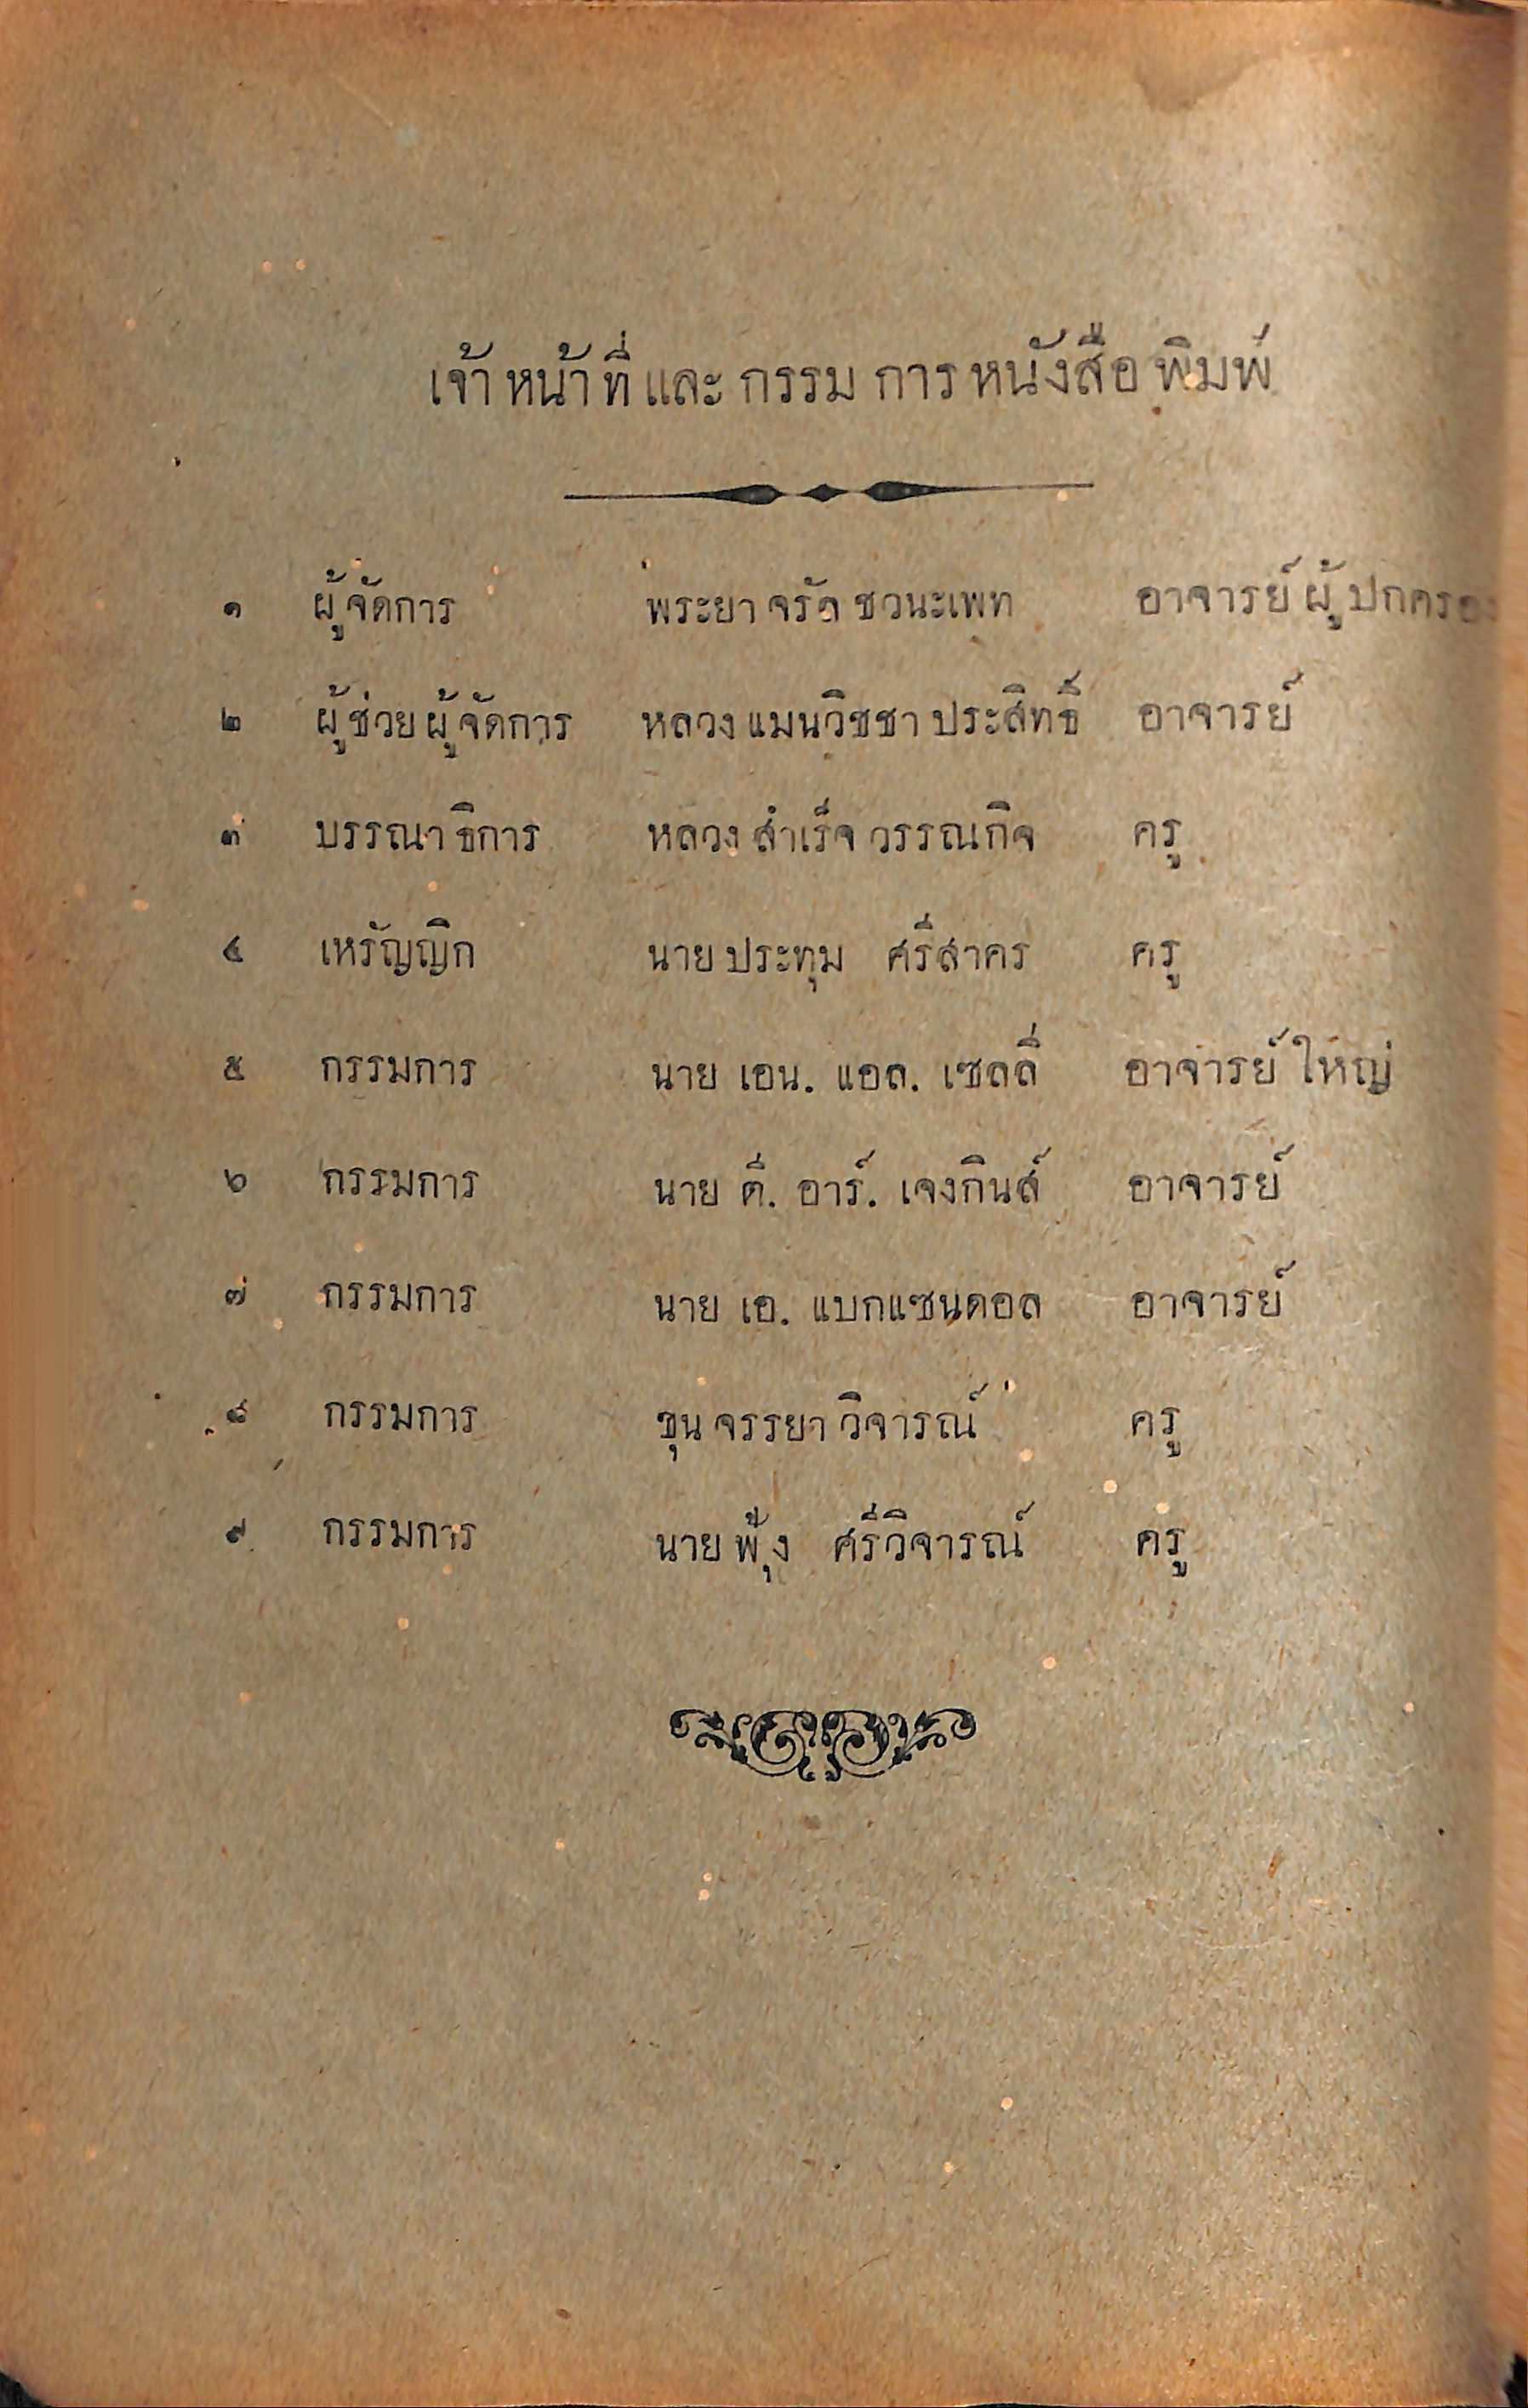 เจ้าหน้าที่และกรรมการหนังสือพิมพ์
๑ ผู้จัดการ พระยาจรัลชวนะเพท อาจารย์ผู้ปกครอง
๒ ผู้ช่วยผู้จัดการ หลวงแมนวิชชาประสิทธิ์ อาจารย์
๓ บรรณาธิการ หลวงสำเร็จวรรณกิจ ครู
๔ เหรัญญิก นายประทุม ศรีสาคร ครู
๕ กรรมการ นาย เอน. แอล. เซลลี่ อาจารย์ใหญ่
๖ กรรมการ นาย ดี. อาร์. เจงกินส์ อาจารย์
๗ กรรมการ นาย เอ. แบกแซนดอล อาจารย์
๘ กรรมการ ขุนจรรยาวิจารณ์ ครู
๙ กรรมการ นายพุ้ง ศรีวิจารณ์ ครู